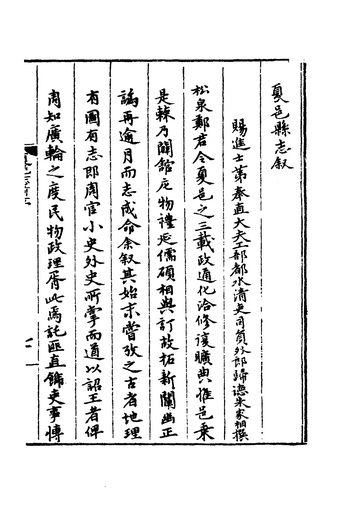 夏邑縣志叙
賜進士第奉直大夫工部都水清吏司員外郎歸德朱家相撰
松泉鄭君令夏邑之三載政通化洽修復曠典惟邑乘
是棘乃闢館庀物禮延儒碩相與訂故拓新闡幽正
譌再逾月而志成命余叙其始末嘗攷之古者地理
有圖有志郎周官小史外史所掌而道以詔王者俾
周知廣輪之度民物政理胥此焉託匪直餙吏事愽